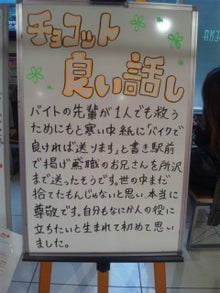 チョコット
良い話し
バイトの先輩が1人でも救う
ためにもと寒い中紙に「バイクで
良ければ送ります」と書き駅前
で掲げ鳶職のお兄さんを所沢
まで送ったそうです。世の中まだ
捨てたもんじゃないと思い、本当に
尊敬です。自分もなにかんの役に
立ちたいと生まれて初めて思い
ました。